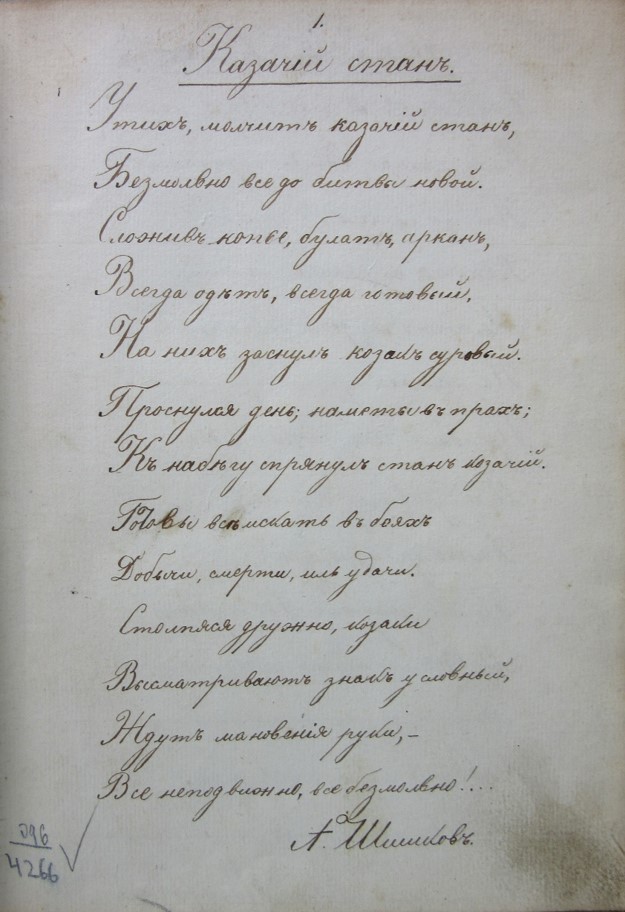 1.
Казачій станъ.
Утихъ, молчитъ казачій станъ,
Безмолвно все до битвы новой.
Сложивъ копье, булатъ, арканъ,
Всегда одѣтъ, всегда готовый,
На нихъ заснулъ козакъ суровый.
Проснулся день; наметы въ прахъ;
Къ набѣгу спрянулъ станъ козачій.
Готовы всѣ искать въ бояхъ
Добычи, смерти, иль удачи.
Столпяся дружно, козаки
Высматриваютъ знакъ условный,
Ждутъ мановенія руки, –
Все неподвижно, все безмолвно!...
А. Шишковъ.
096
4266